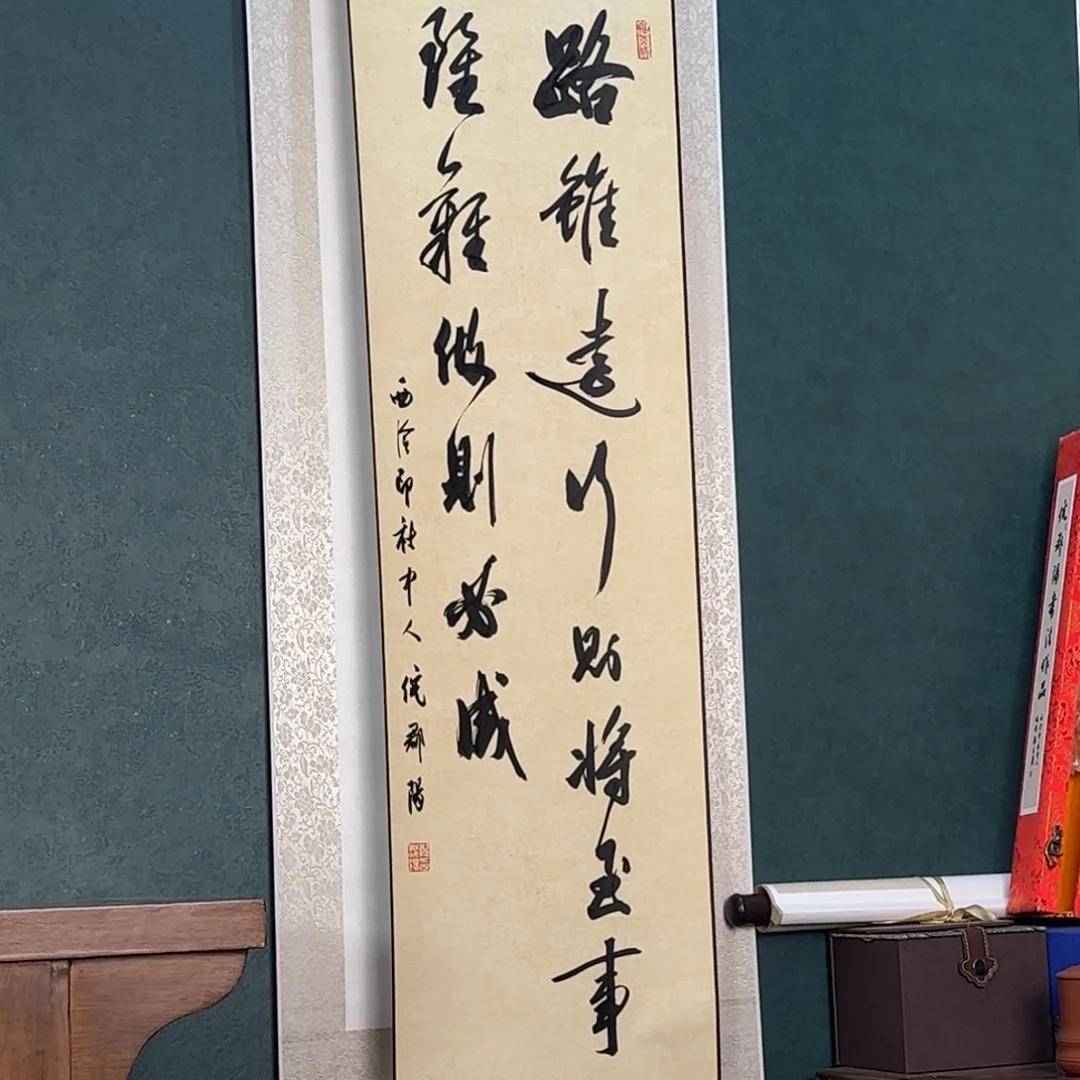 路雖遠行則將至事
雖難做則必成
西泠印社中人倪郡陽
倪郡陽書法作品